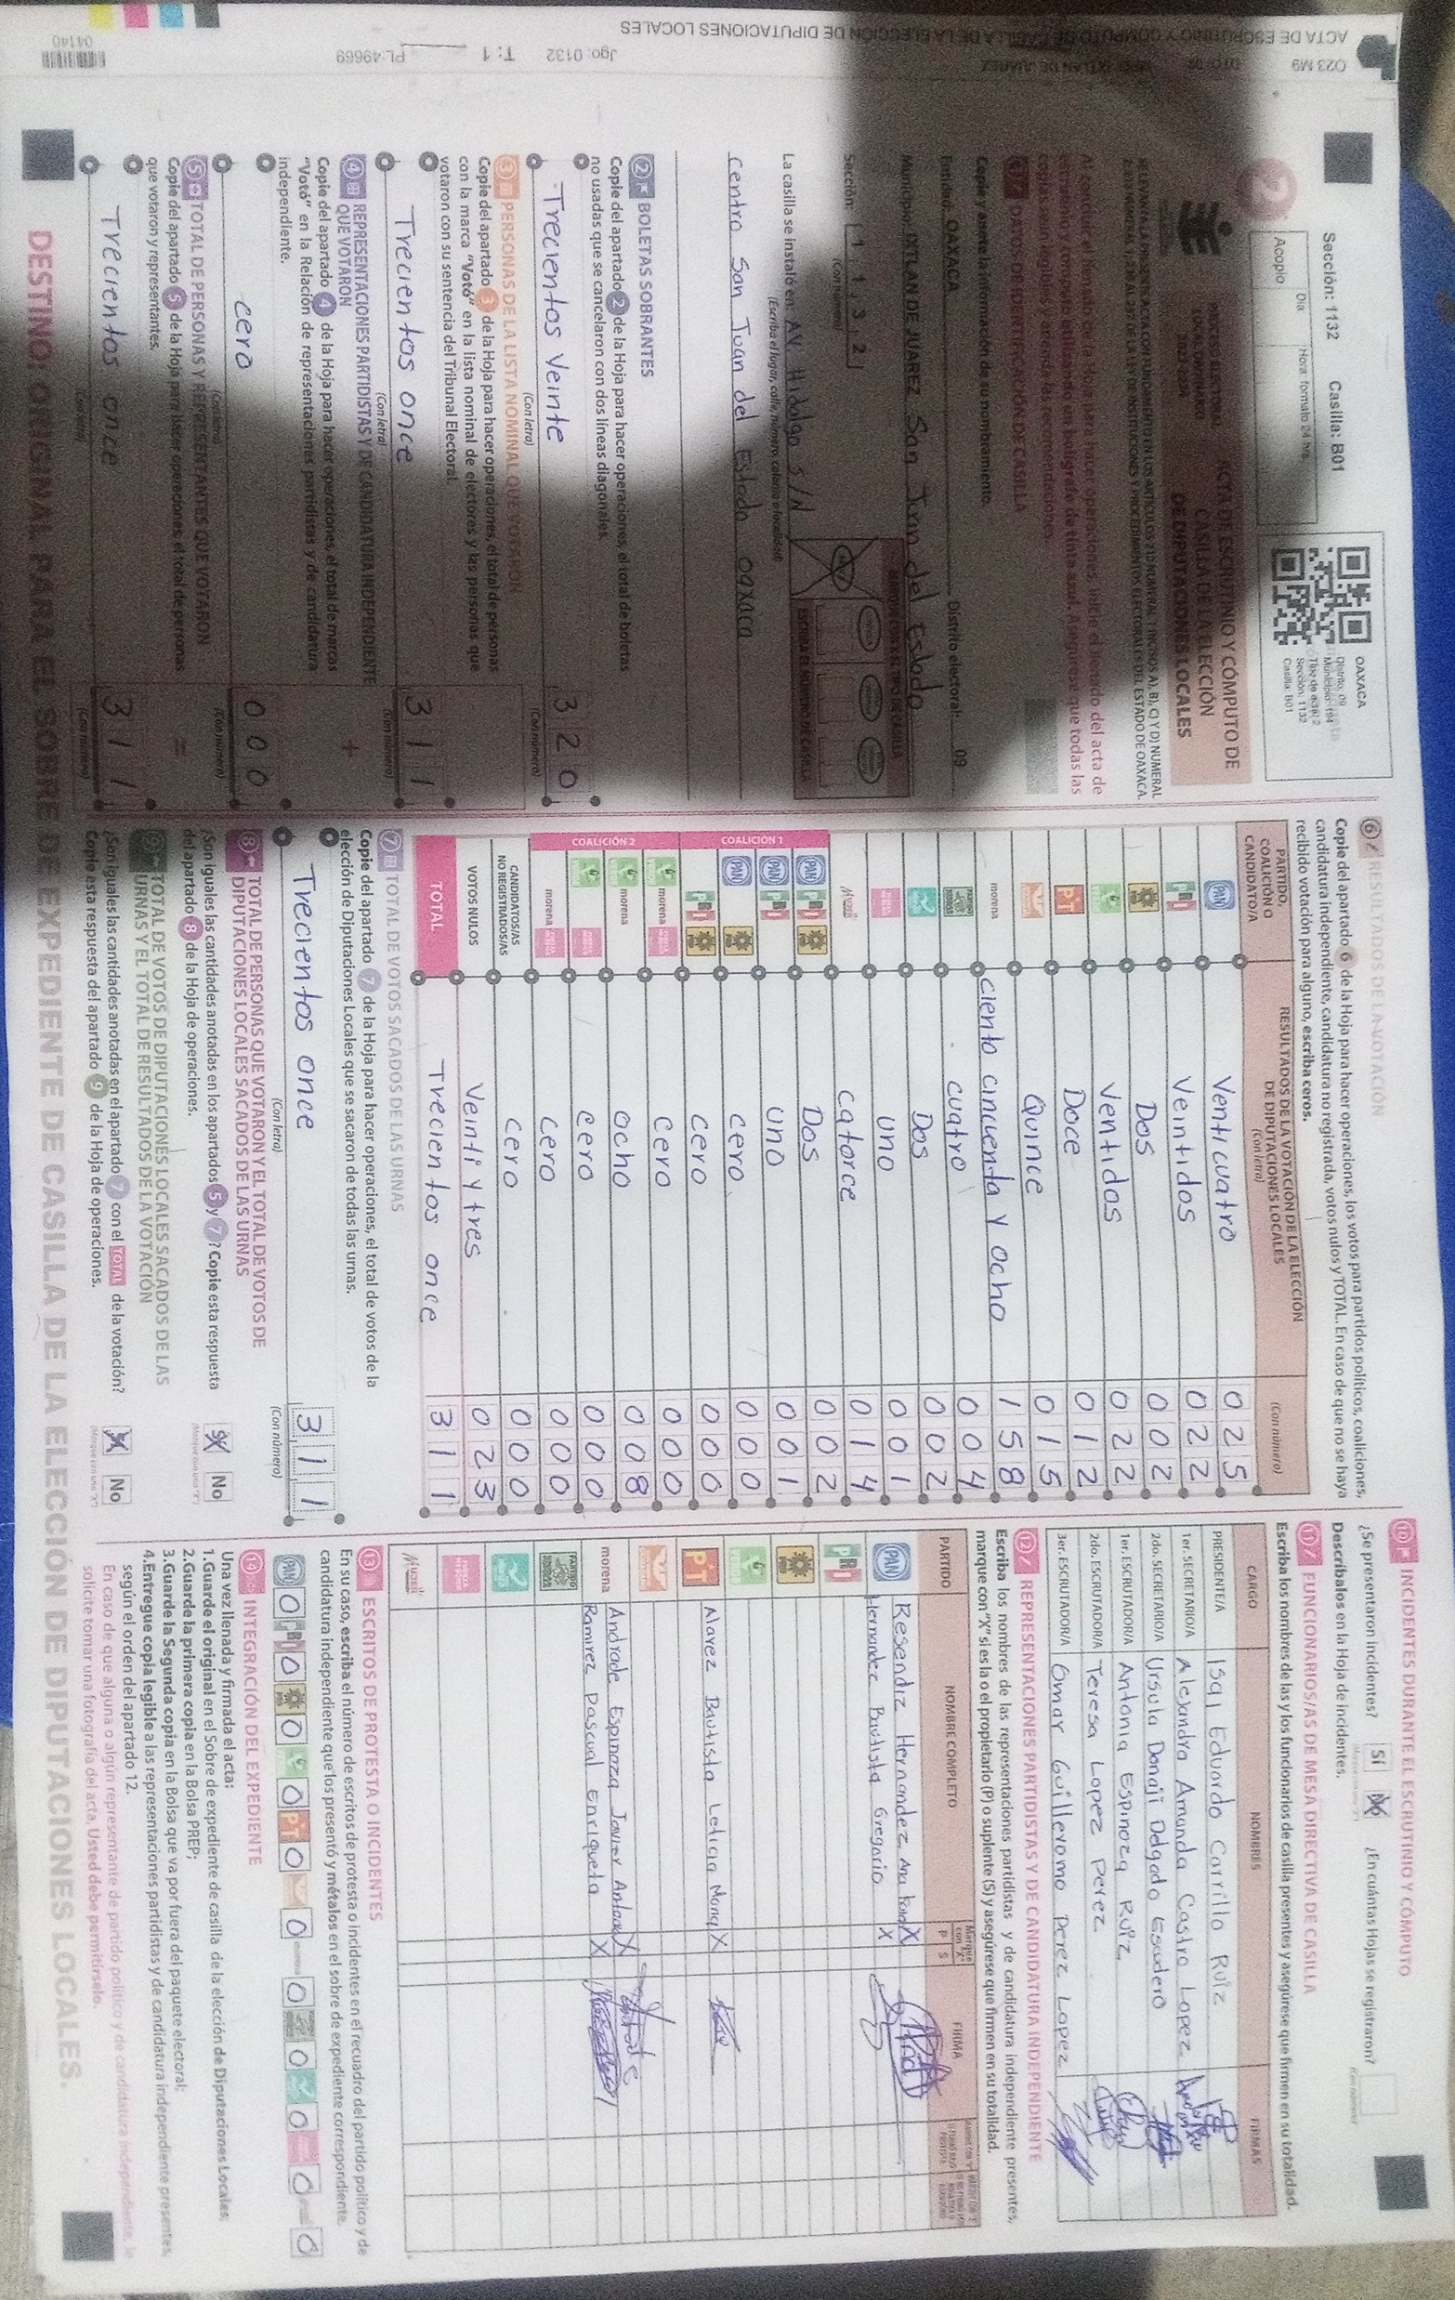 Sección: 1132 Casilla: B01
OAXACA
Distrito: 09
Sección: 1132
Casilla: B01
Acopio
Día
Hora: formato 24 hrs.
2
ACTA DE ESCRUTINIO Y CÓMPUTO DE
CASILLA DE LA ELECCIÓN
DE DIPUTACIONES LOCALES
Copie y anote la información de su nombramiento.
Entidad: OAXACA Distrito electoral: 09
San Juan del Estado
Sección: 1 1 3 2
(Con número)
La casilla se instaló en: AV. Hidalgo S/N
(Escriba el lugar, calle, número, colonia o localidad)
Centro San Juan del Estado Oaxaca
2 BOLETAS SOBRANTES
Copie del apartado 2 de la Hoja para hacer operaciones, el total de boletas
no usadas que se cancelaron con dos líneas diagonales.
Trecientos Veinte 3 2 0
(Con letra) (Con número)
3 PERSONAS DE LA LISTA NOMINAL QUE VOTARON
Copie del apartado 3 de la Hoja para hacer operaciones, el total de personas
con la marca "Votó" en la lista nominal de electores y las personas que
votaron con su sentencia del Tribunal Electoral.
Trecientos once 3 1 1
(Con letra) (Con número)
4 REPRESENTACIONES PARTIDISTAS Y DE CANDIDATURA INDEPENDIENTE
QUE VOTARON
Copie del apartado 4 de la Hoja para hacer operaciones, el total de marcas
"Votó" en la Relación de representaciones partidistas y de candidatura
independiente.
cero 0 0 0
(Con letra) (Con número)
5 TOTAL DE PERSONAS Y REPRESENTANTES QUE VOTARON
Copie del apartado 5 de la Hoja para hacer operaciones, el total de personas
que votaron y representantes.
Trecientos once 3 1 1
(Con letra) (Con número)
6 RESULTADOS DE LA VOTACIÓN
Copie del apartado 6 de la Hoja para hacer operaciones, los votos para partidos políticos, coaliciones,
candidatura independiente, candidatura no registrada, votos nulos y TOTAL. En caso de que no se haya
recibido votación para alguno, escriba ceros.
PARTIDO, COALICIÓN O CANDIDATO/A
RESULTADOS DE LA VOTACIÓN DE LA ELECCIÓN
DE DIPUTACIONES LOCALES
(Con letra) (Con número)
PAN Venticuatro 0 2 5
PRI Veintidos 0 2 2
PRD Dos 0 0 2
Ventidos 0 2 2
PT Doce 0 1 2
Quince 0 1 5
morena ciento cincuenta y ocho 1 5 8
cuatro 0 0 4
Dos 0 0 2
uno 0 0 1
catorce 0 1 4
COALICIÓN 1
PAN PRI PRD Dos 0 0 2
PAN PRI uno 0 0 1
PAN PRD cero 0 0 0
PRI PRD cero 0 0 0
COALICIÓN 2
morena cero 0 0 0
morena ocho 0 0 8
cero 0 0 0
morena cero 0 0 0
CANDIDATOS/AS NO REGISTRADOS/AS cero 0 0 0
VOTOS NULOS Veinti y tres 0 2 3
TOTAL Trecientos once 3 1 1
7 TOTAL DE VOTOS SACADOS DE LAS URNAS
Copie del apartado 7 de la Hoja para hacer operaciones, el total de votos de la
elección de Diputaciones Locales que se sacaron de todas las urnas.
Trecientos once 3 1 1
(Con letra) (Con número)
8 TOTAL DE PERSONAS QUE VOTARON Y EL TOTAL DE VOTOS DE
DIPUTACIONES LOCALES SACADOS DE LAS URNAS
¿Son iguales las cantidades anotadas en los apartados 5 y 7? Copie esta respuesta
del apartado 8 de la Hoja de operaciones. No
9 TOTAL DE VOTOS DE DIPUTACIONES LOCALES SACADOS DE LAS
URNAS Y EL TOTAL DE RESULTADOS DE LA VOTACIÓN
¿Son iguales las cantidades anotadas en el apartado 7 con el TOTAL de la votación? No
Copie esta respuesta del apartado 9 de la Hoja de operaciones.
10 INCIDENTES DURANTE EL ESCRUTINIO Y CÓMPUTO
¿Se presentaron incidentes? Sí ¿En cuántas Hojas se registraron?
Descríbalos en la Hoja de incidentes.
11 FUNCIONARIOS/AS DE MESA DIRECTIVA DE CASILLA
Escriba los nombres de las y los funcionarios de casilla presentes y asegúrese que firmen en su totalidad.
CARGO NOMBRES FIRMAS
PRESIDENTE/A Isai Eduardo Carrillo Ruiz
1er. SECRETARIO/A Alejandra Amanda Castro Lopez
2do. SECRETARIO/A Ursula Donaji Delgado Escudero
1er. ESCRUTADOR/A Antonia Espinoza Ruiz
2do. ESCRUTADOR/A Teresa Lopez Perez
3er. ESCRUTADOR/A Omar Guillermo Perez Lopez
12 REPRESENTACIONES PARTIDISTAS Y DE CANDIDATURA INDEPENDIENTE
Escriba los nombres de las representaciones partidistas y de candidatura independiente presentes,
marque con "X" si es la o el propietario (P) o suplente (S) y asegúrese que firmen en su totalidad.
PARTIDO NOMBRE COMPLETO Marque con "X" P S FIRMA
PAN Resendiz Hernandez Ana X
Hernandez Bautista Gregorio X
PRI
PT Alavez Bautista Leticia X
Andrade Espinoza Javier Antonio X
morena Ramirez Pascual Enriqueta X
13 ESCRITOS DE PROTESTA O INCIDENTES
En su caso, escriba el número de escritos de protesta o incidentes en el recuadro del partido político y de
candidatura independiente que los presentó y métalos en el sobre de expediente correspondiente.
PAN 0 PRI 0 PRD 0 0 PT 0 0 0 0 0 0 0
14 INTEGRACIÓN DEL EXPEDIENTE
Una vez llenada y firmada el acta:
1. Guarde el original en el Sobre de expediente de casilla de la elección de Diputaciones Locales;
2. Guarde la primera copia en la Bolsa PREP;
3. Guarde la Segunda copia en la Bolsa que va por fuera del paquete electoral;
4. Entregue copia legible a las representaciones partidistas y de candidatura independiente presentes,
según el orden del apartado 12.
En caso de que alguna o algún representante de partido político y de candidatura independiente, le
solicite tomar una fotografía del acta, Usted debe permitírselo.
DESTINO: ORIGINAL PARA EL SOBRE DE EXPEDIENTE DE CASILLA DE LA ELECCIÓN DE DIPUTACIONES LOCALES.
O23 M9
ACTA DE ESCRUTINIO Y CÓMPUTO DE CASILLA DE LA ELECCIÓN DE DIPUTACIONES LOCALES
Jgo: 0132 T: 1 PL: 49669
04140